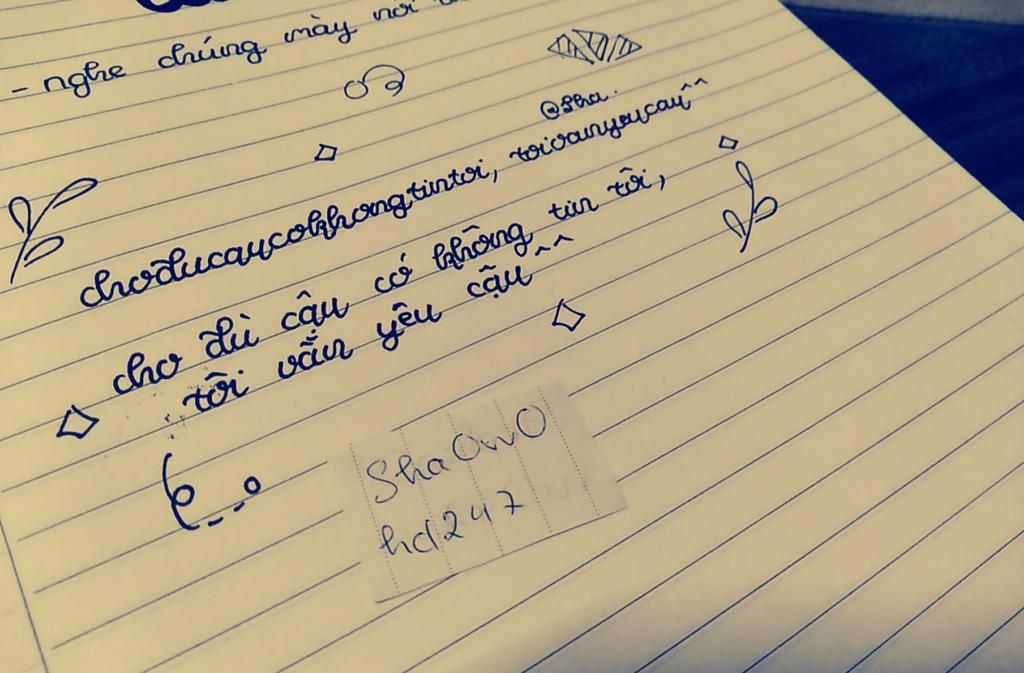 - nghe chúng mày nói
@Sha.
choducaucokhongtintoi, toivanyeucau^^
cho dù cậu có không tin tôi,
tôi vẫn yêu cậu^^
ShaOwO
hd247